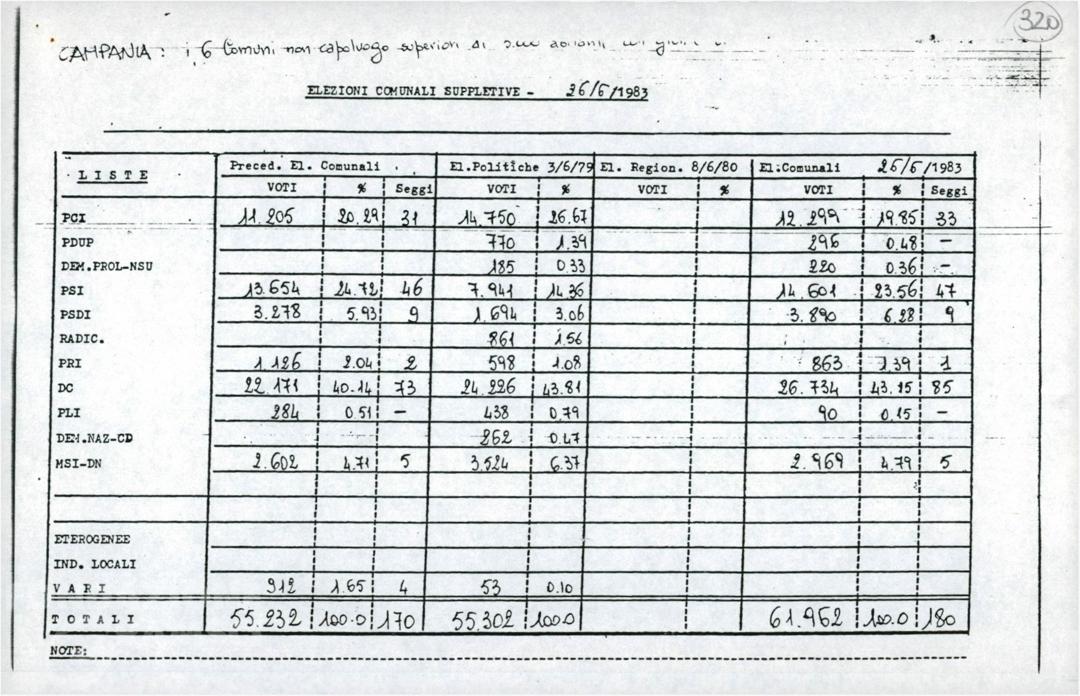 320
CAMPANIA : i 6 Comuni non capoluogo superiori di
ELEZIONI COMUNALI SUPPLETIVE - 26/6/1983
LISTE Preced. El. Comunali El.Politiche 3/6/79 El. Region. 8/6/80 El.Comunali 26/6/1983
VOTI % Seggi VOTI % VOTI % VOTI % Seggi
PCI 11.205 20.29 31 14.750 26.67 12.299 19.85 33
PDUP 770 1.39 296 0.48 -
DEM.PROL-NSU 185 0.33 220 0.36 -
PSI 13.654 24.72 46 7.941 14.36 14.601 23.56 47
PSDI 3.278 5.93 9 1.694 3.06 3.890 6.28 9
RADIC. 861 1.56
PRI 1.126 2.04 2 598 1.08 863 1.39 1
DC 22.171 40.14 73 24.226 43.81 26.734 43.15 85
PLI 284 0.51 - 438 0.79 90 0.15 -
DEM.NAZ-CD 262 0.47
MSI-DN 2.602 4.71 5 3.524 6.37 2.969 4.79 5
ETEROGENEE
IND. LOCALI
VARI 912 1.65 4 53 0.10
TOTALI 55.232 100.0 170 55.302 100.0 61.962 100.0 180
NOTE: